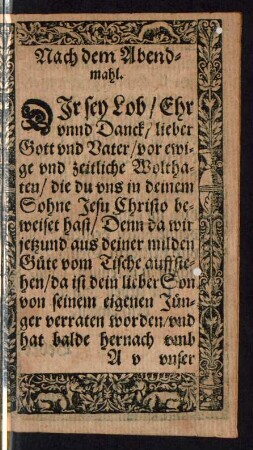 Nach dem Abend-
mahl.
DIr sey Lob / Ehr
vnnd Danck / lieber
Gott vnd Vater / vor ewi-
ge vnd zeitliche Woltha-
ten / die du vns in deinem
Sohne Jesu Christo be-
weiset hast / Denn da wir
jetzund aus deiner milden
Güte vom Tische auffste-
hen / da ist dein lieber Son
von seinem eigenen Jün-
ger verraten worden / vnd
hat balde hernach vmb
A v vnser